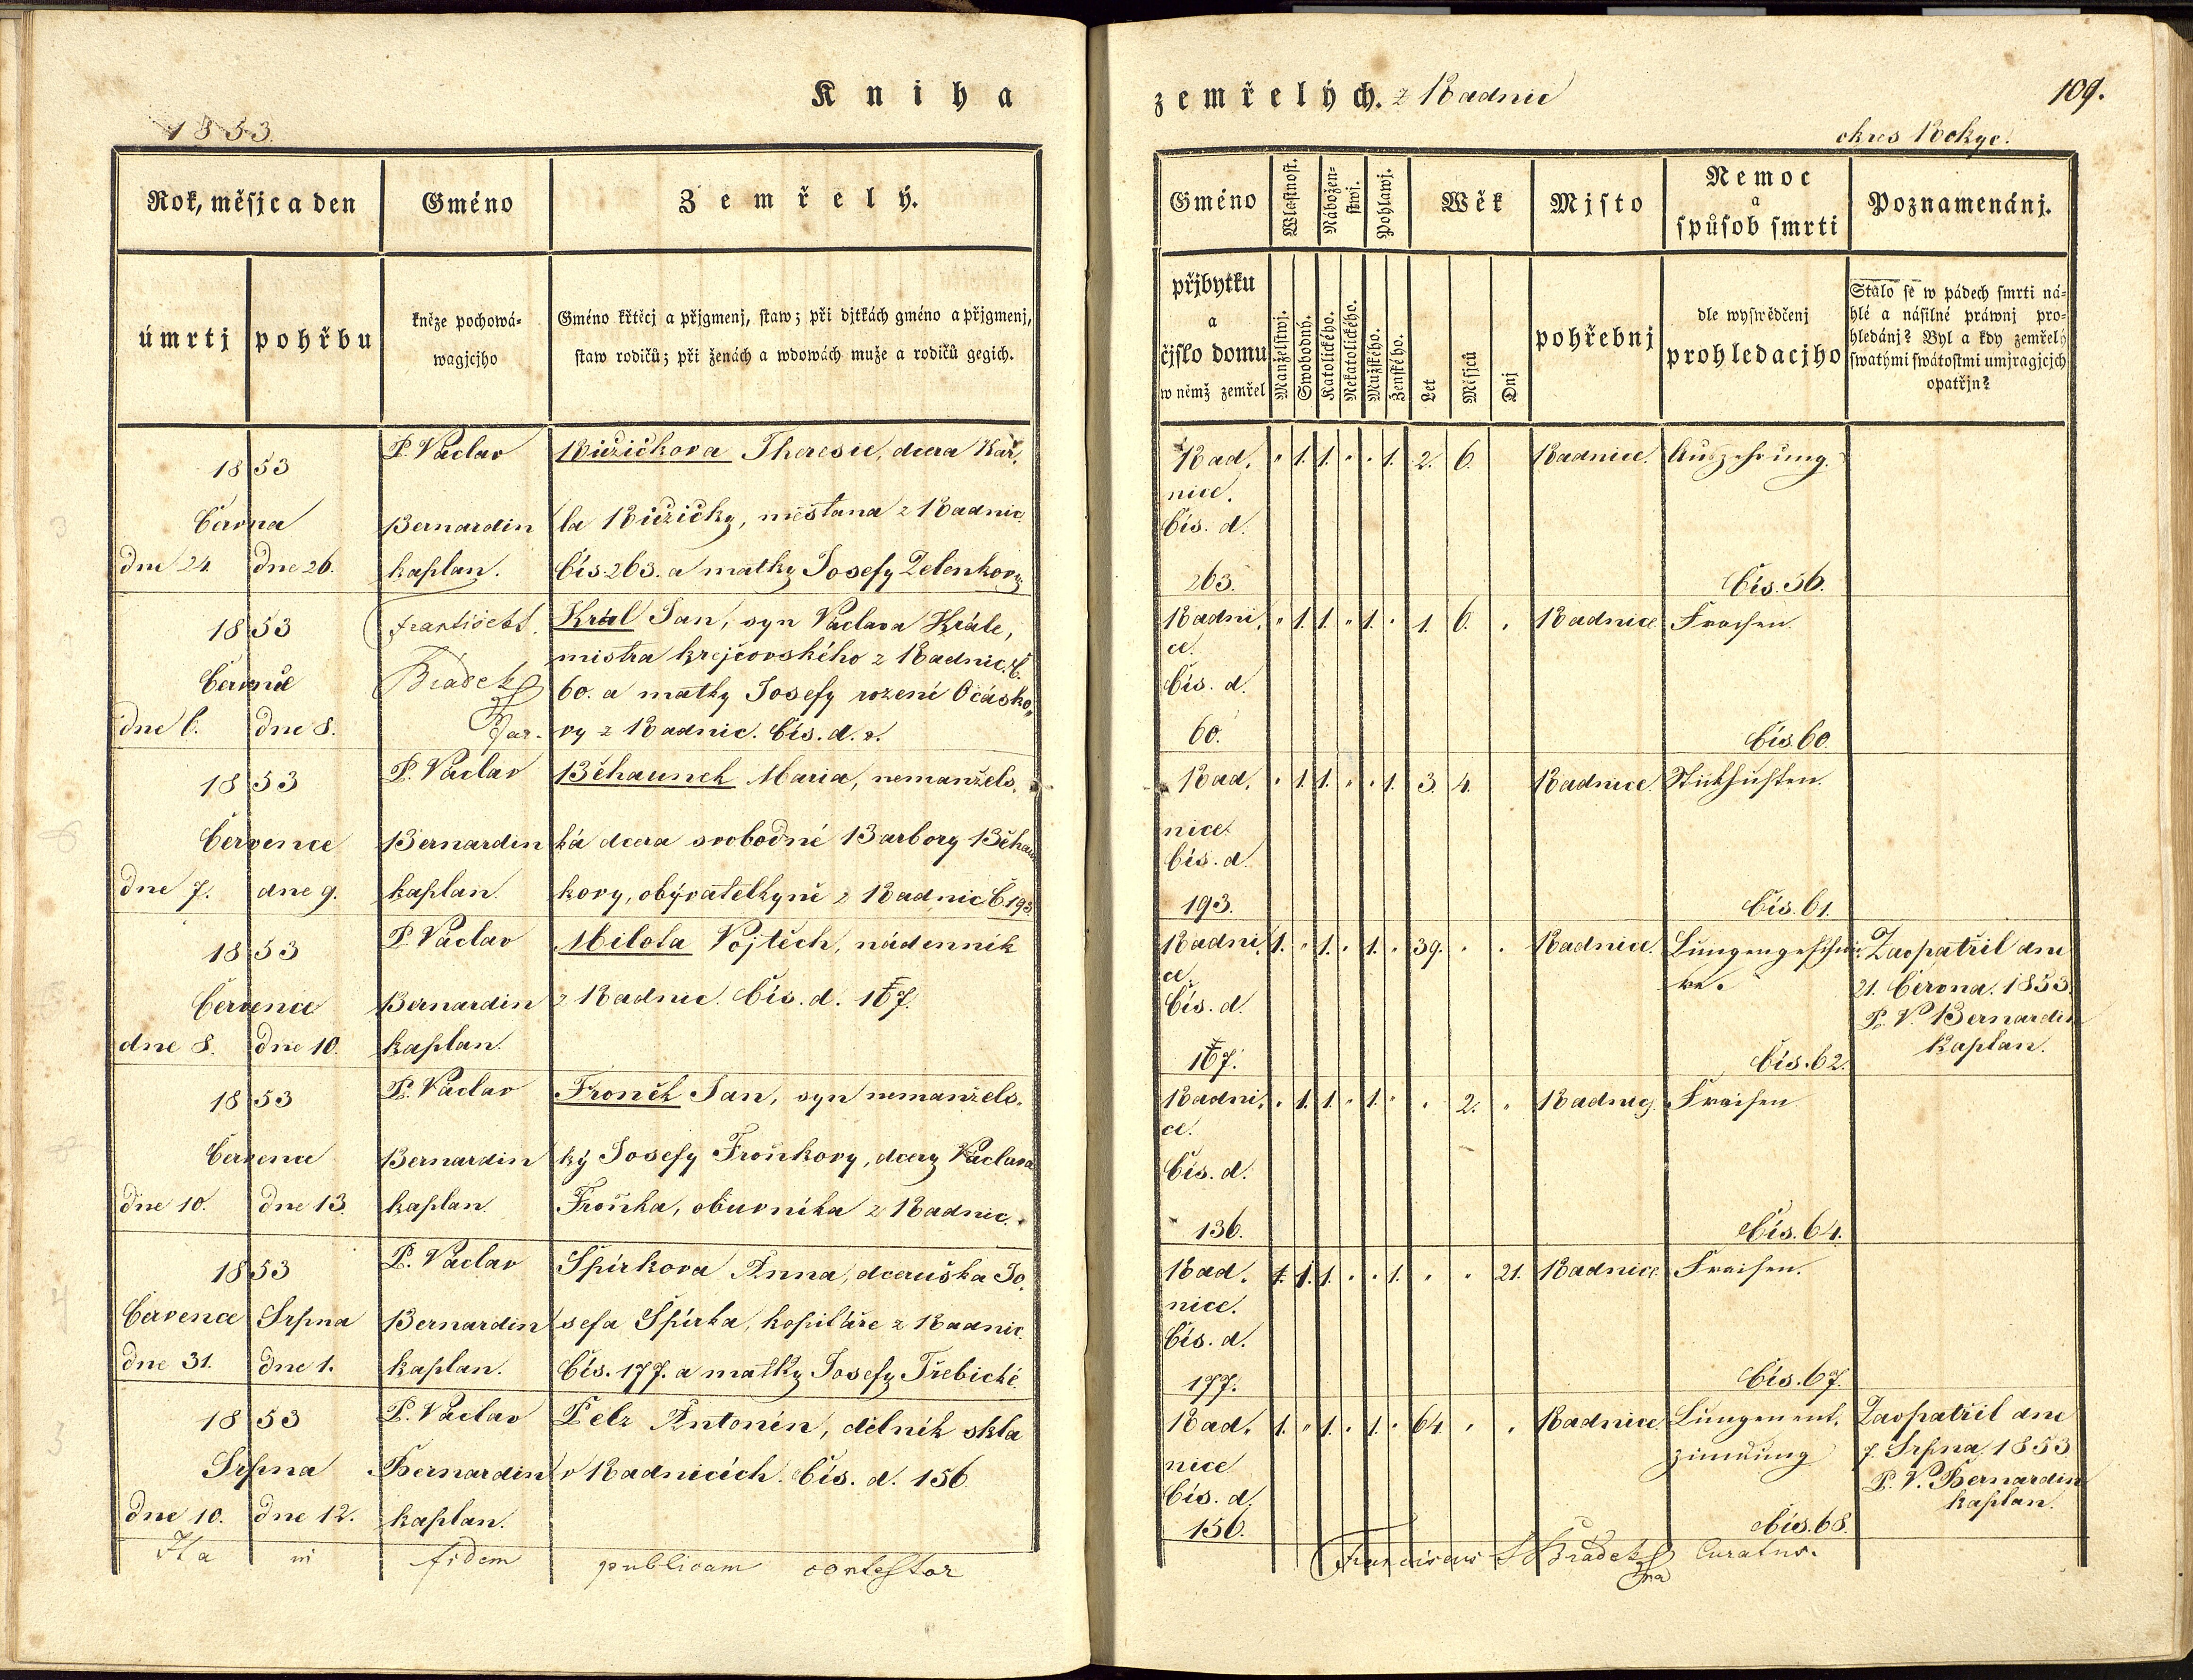 Kniha
1853.
Rok, měsjc a den
Gméno
Zemřelý.
úmrtj
pohřbu
kněze pochowá-
wagjcjho
Gméno křtěcj a přjgmenj, staw; při djtkách gméno a přjgmenj,
staw rodičů; při ženách a wdowách muže a rodičů gegich.
1853
Června
dne 24.
dne 26.
P. Václav
Bernardin
kaplan.
Růžičkova Theresie, dcera Kar,
la Růžičky, měšťana z Radnic
Čís. 263. a matky Josefy Zelenkovy
1853
Července
dne 6.
dne 8.
František
Bradek
Far.
Král Jan, syn Václava Krále,
mistra krejčovského z Radnic. Č.
60. a matky Josefy rození Ocásko,
vy z Radnic. Čís. d. z.
1853
Července
dne 7.
dne 9.
P. Václav
Bernardin
kaplan.
Běhaunek Maria, nemanžels,
ká dcera svobodné Barbory Běhaun
kovy, obývatelkyně z Radnic Č. 193.
1853
Července
dne 8.
dne 10.
P. Václav
Bernardin
kaplan.
Milota Vojtěch, nádenník
z Radnic. Čís. d. 167.
1853
Července
dne 10.
dne 13.
P. Václav
Bernardin
kaplan.
Froněk Jan, syn nemanžels.
ký Josefy Froňkovy, dcery Václava
Froňka, obuvníka z Radnic.
1853
Července
Srpna
dne 31.
dne 1.
P. Václav
Bernardin
kaplan.
Špírkova Anna, dceruška Jo,
sefa Špírka, kopitáře z Radnic
Čís. 177. a matky Josefy Třebické.
1853
Srpna
dne 10.
dne 12.
P. Václav
Bernardin
kaplan.
Pelz Antonín, dělník skla
v Radnicích. Čís. d. 156.
Ita in fidem publicam contestor
zemřelých. z Radnic
109.
okres Rokyc.
Gméno
Wlastnost.
Nábožen-
stwj.
Pohlawj.
Wěk
Mjsto
Nemoc
a
spůsob smrti
Poznamenánj.
přjbytku
a
čjslo domu
w němž zemřel
Manželstwj.
Swobodný.
Katolického.
Nekatolického.
Mužského.
Ženského.
Let
Měsjců
Dnj
pohřebnj
dle wyswědčenj
prohledacjho
Stalo se w pádech smrti ná-
hlé a násilné práwnj pro-
hledánj? Byl a kdy zemřelý
swatými swátostmi umjragjcjch
opatřjn?
Rad, " 1. 1. " " 1. 2. 6. Radnice. Auszehrung.
nice.
Čís. d.
263. Čís. 56.
Radni, " 1. 1. " 1. " 1. 6. " Radnice Fraisen.
ce.
Čís. d.
60. Čís. 60.
Rad, " 1. 1. " " 1. 3. 4. Radnice. Stickhusten.
nice.
Čís. d.
193. Čís. 61.
Radni, 1. " 1. " 1. " 39. " " Radnice. Lungengeschwü- Zaopatřil dne
ce.
re.
21. Června. 1853.
Čís. d.
P. V. Bernardin
Kaplan.
167. Čís. 62.
Radni, " 1. 1. " 1. " " 2. " Radnicy. Fraisen
ce.
Čís. d.
136. Čís. 64.
Rad, 1. 1. 1. " " 1. " " 21. Radnice Fraisen.
nice.
Čís. d.
177. Čís. 67.
Rad, 1. " 1. " 1. " 64. " " Radnice. Lungenent, Zaopatřil dne
nice
zündung
7. Srpna. 1853
Čís. d.
P. V. Bernardin
kaplan.
156. Čís. 68.
Franciscus Bradek Curatus.